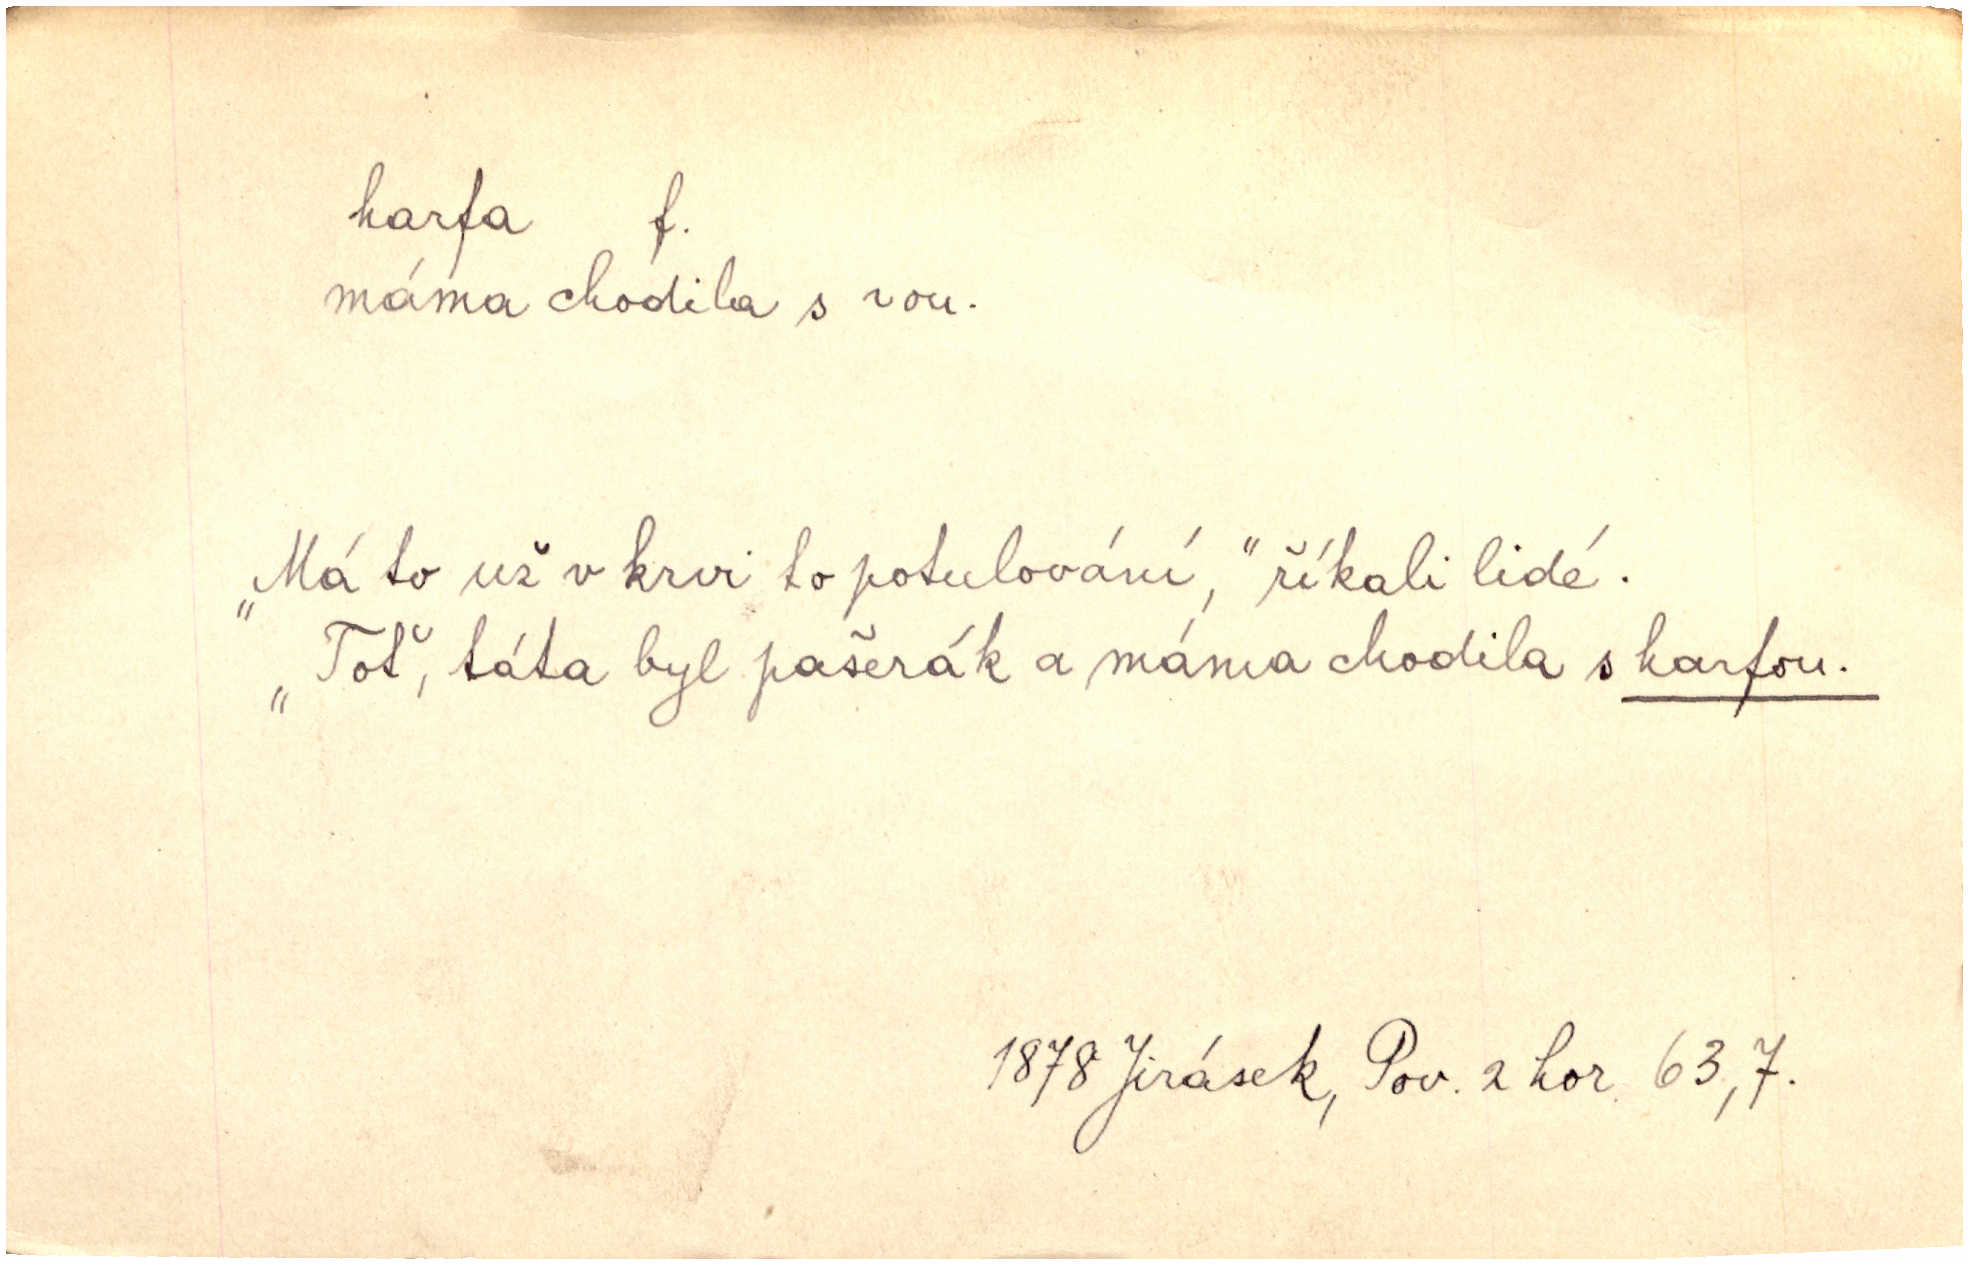 harfa f.
máma chodila s ~ou.
„Má to už v krvi to potulování,“ říkali lidé.
„Toť, táta byl pašerák a máma chodila s harfou.
1878 Jirásek, Pov. z hor 63,7.